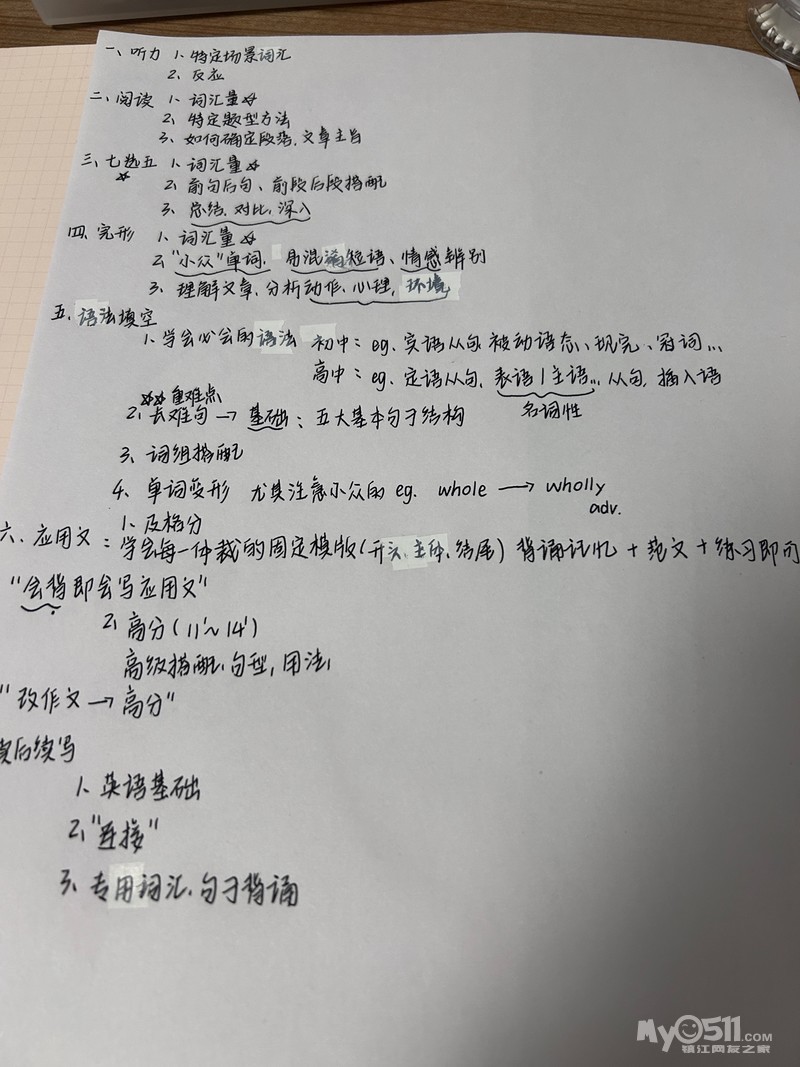 一、听力 1、特定场景词汇
2、反应
二、阅读 1、词汇量☆
2、特定题型方法
3、如何确定段落,文章主旨
三、七选五 1、词汇量☆
☆
2、前句后句、前段后段搭配
3、总结、对比、深入
四、完形 1、词汇量☆
2、"小众"单词、易混淆短语、情感辨别
3、理解文章、分析动作、心理,环境
五、语法填空
1、学会必会的语法 初中:eg、宾语从句 被动语态、现完、冠词...
高中:eg、定语从句、表语/主语...从句,插入语
名词性
☆☆重难点
2、长难句→基础:五大基本句子结构
3、词组搭配
4、单词变形 尤其注意小众的 eg. whole → wholly
adv.
六、应用文:1、及格分
学会每一体裁的固定模版(开头、主体、结尾)背诵记忆+范文+练习即可
"会背即会写应用文"
2、高分(11'~14')
高级搭配、句型,用法、
"改作文→高分"
读后续写
1、英语基础
2、"连接"
3、专用词汇、句子背诵
My0511.COM
镇江网友之家